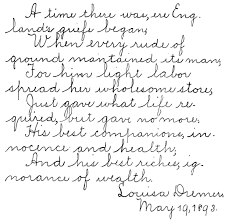 A time there was, ere Eng
land's griefs began,
When every rude of
ground maintained its man,
For him light labor
spread her wholesome store,
Just gave what life re-
quired, but gave no more:
His best companions, in-
nocence and health,
And his best riches, ig-
norance of wealth.
Louisa
May 19, 1893.